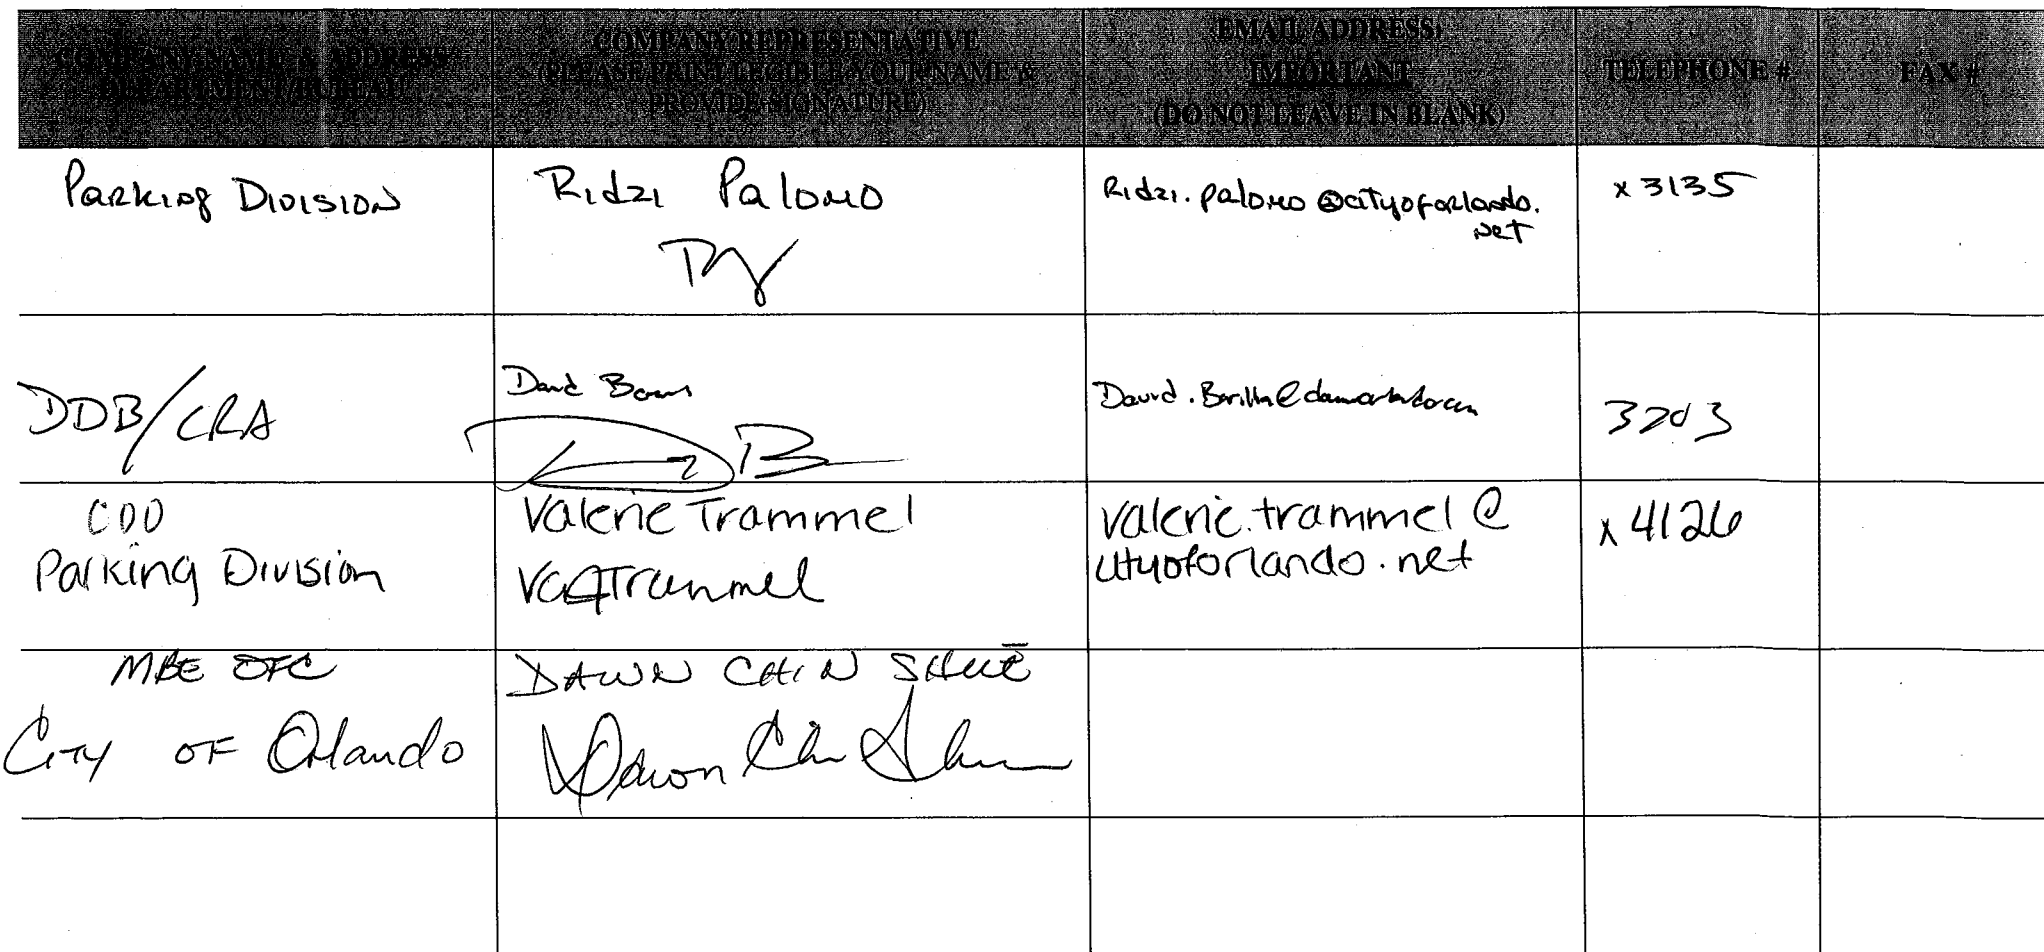 COMPANY NAME & ADDRESS
DEPARTMENT/BUREAU
COMPANY REPRESENTATIVE
(PLEASE PRINT LEGIBLY YOUR NAME &
PROVIDE SIGNATURE)
EMAIL ADDRESS:
IMPORTANT
(DO NOT LEAVE IN BLANK)
TELEPHONE #
FAX #
Parking Division
Ridzi Palomo
Ridzi.palomo@cityoforlando.
net
x3135
DDB/CRA
David
3203
CDD
Parking Division
Valerie Trammel
Trammel
valerie.trammel@
cityoforlando.net
x4126
MBE OFC
City of Orlando
DAWN CHIN SHUE
Dawn Chin Shue